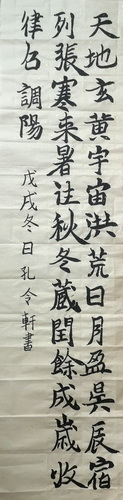 天地玄黄宇宙洪荒日月盈昃辰宿
列張寒来暑往秋冬蔵閏餘成歲收
律吕調陽
戊戌冬日孔令軒書